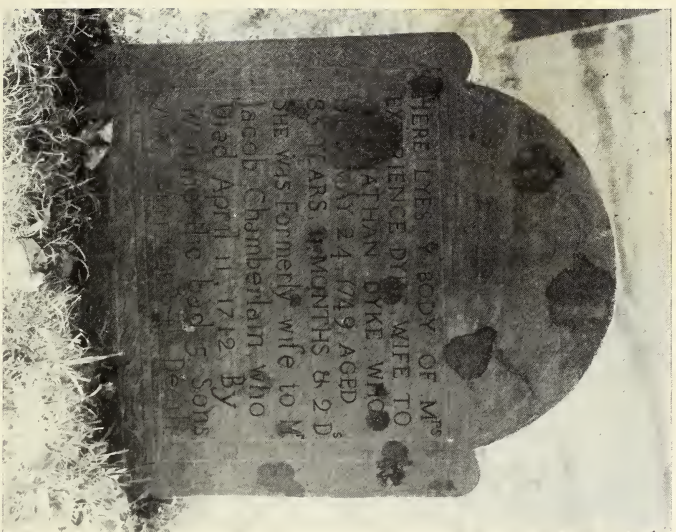 HERE LYES Yᵉ BODY OF Mʳˢ
EXPERIENCE DYKE WIFE TO
ATHAN DYKE WHO
MAY 24 1749 AGED
YEARS 4 MONTHS & 2 Dˢ
SHE was Formerly wife to Mʳ
Jacob Chamberlain who
Dead April 11 1712 By
she had 5 Sons